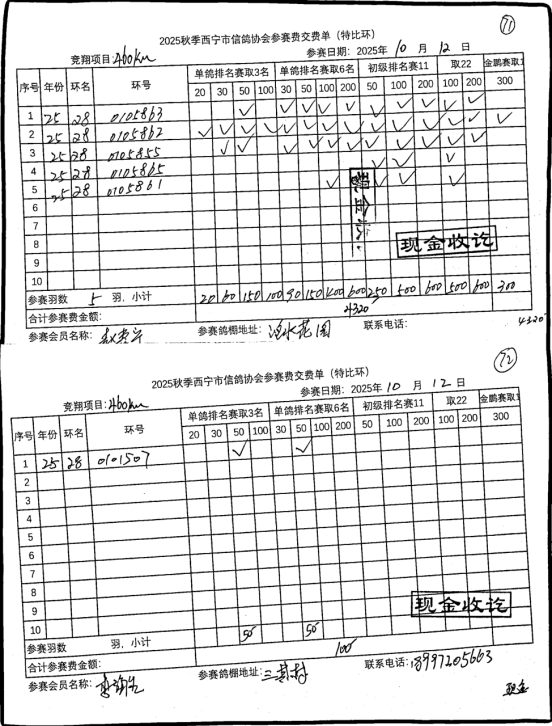 71
2025秋季西宁市信鸽协会参赛费交费单（特比环）
竞翔项目:460km 参赛日期: 2025年 10 月 12 日
序号 年份 环名 环号 单鸽排名赛取3名 单鸽排名赛取6名 初级排名赛11 取22 金鹏赛取1
20 30 50 100 30 50 100 200 50 100 200 100 200 300
1 25 28 0105863 ✓ ✓ ✓ ✓ ✓ ✓ ✓ ✓ ✓ ✓
2 25 28 0105862 ✓ ✓ ✓ ✓ ✓ ✓ ✓ ✓ ✓ ✓ ✓ ✓ ✓ ✓
3 25 28 0105855 ✓ ✓ ✓ ✓ ✓ ✓ ✓ ✓ ✓ ✓ ✓
4 25 28 0105865 ✓ ✓ ✓
5 25 28 0105861 ✓ ✓ ✓ ✓
6
7
8 现金收讫
9
10
参赛羽数 5 羽，小计 20 60 150 100 90 150 400 600 250 500 600 500 600 300
合计参赛费金额: 4320
参赛会员名称: 参赛鸽棚地址: 花园 联系电话: 4320
72
2025秋季西宁市信鸽协会参赛费交费单（特比环）
竞翔项目:460km 参赛日期: 2025年 10 月 12 日
序号 年份 环名 环号 单鸽排名赛取3名 单鸽排名赛取6名 初级排名赛11 取22 金鹏赛取1
20 30 50 100 30 50 100 200 50 100 200 100 200 300
1 25 28 0101507 ✓ ✓
2
3
4
5
6
7
8
9 现金收讫
10
参赛羽数 羽，小计 50 50
合计参赛费金额: 100
参赛会员名称: 参赛鸽棚地址: 二其村 联系电话: 18997205663
现金